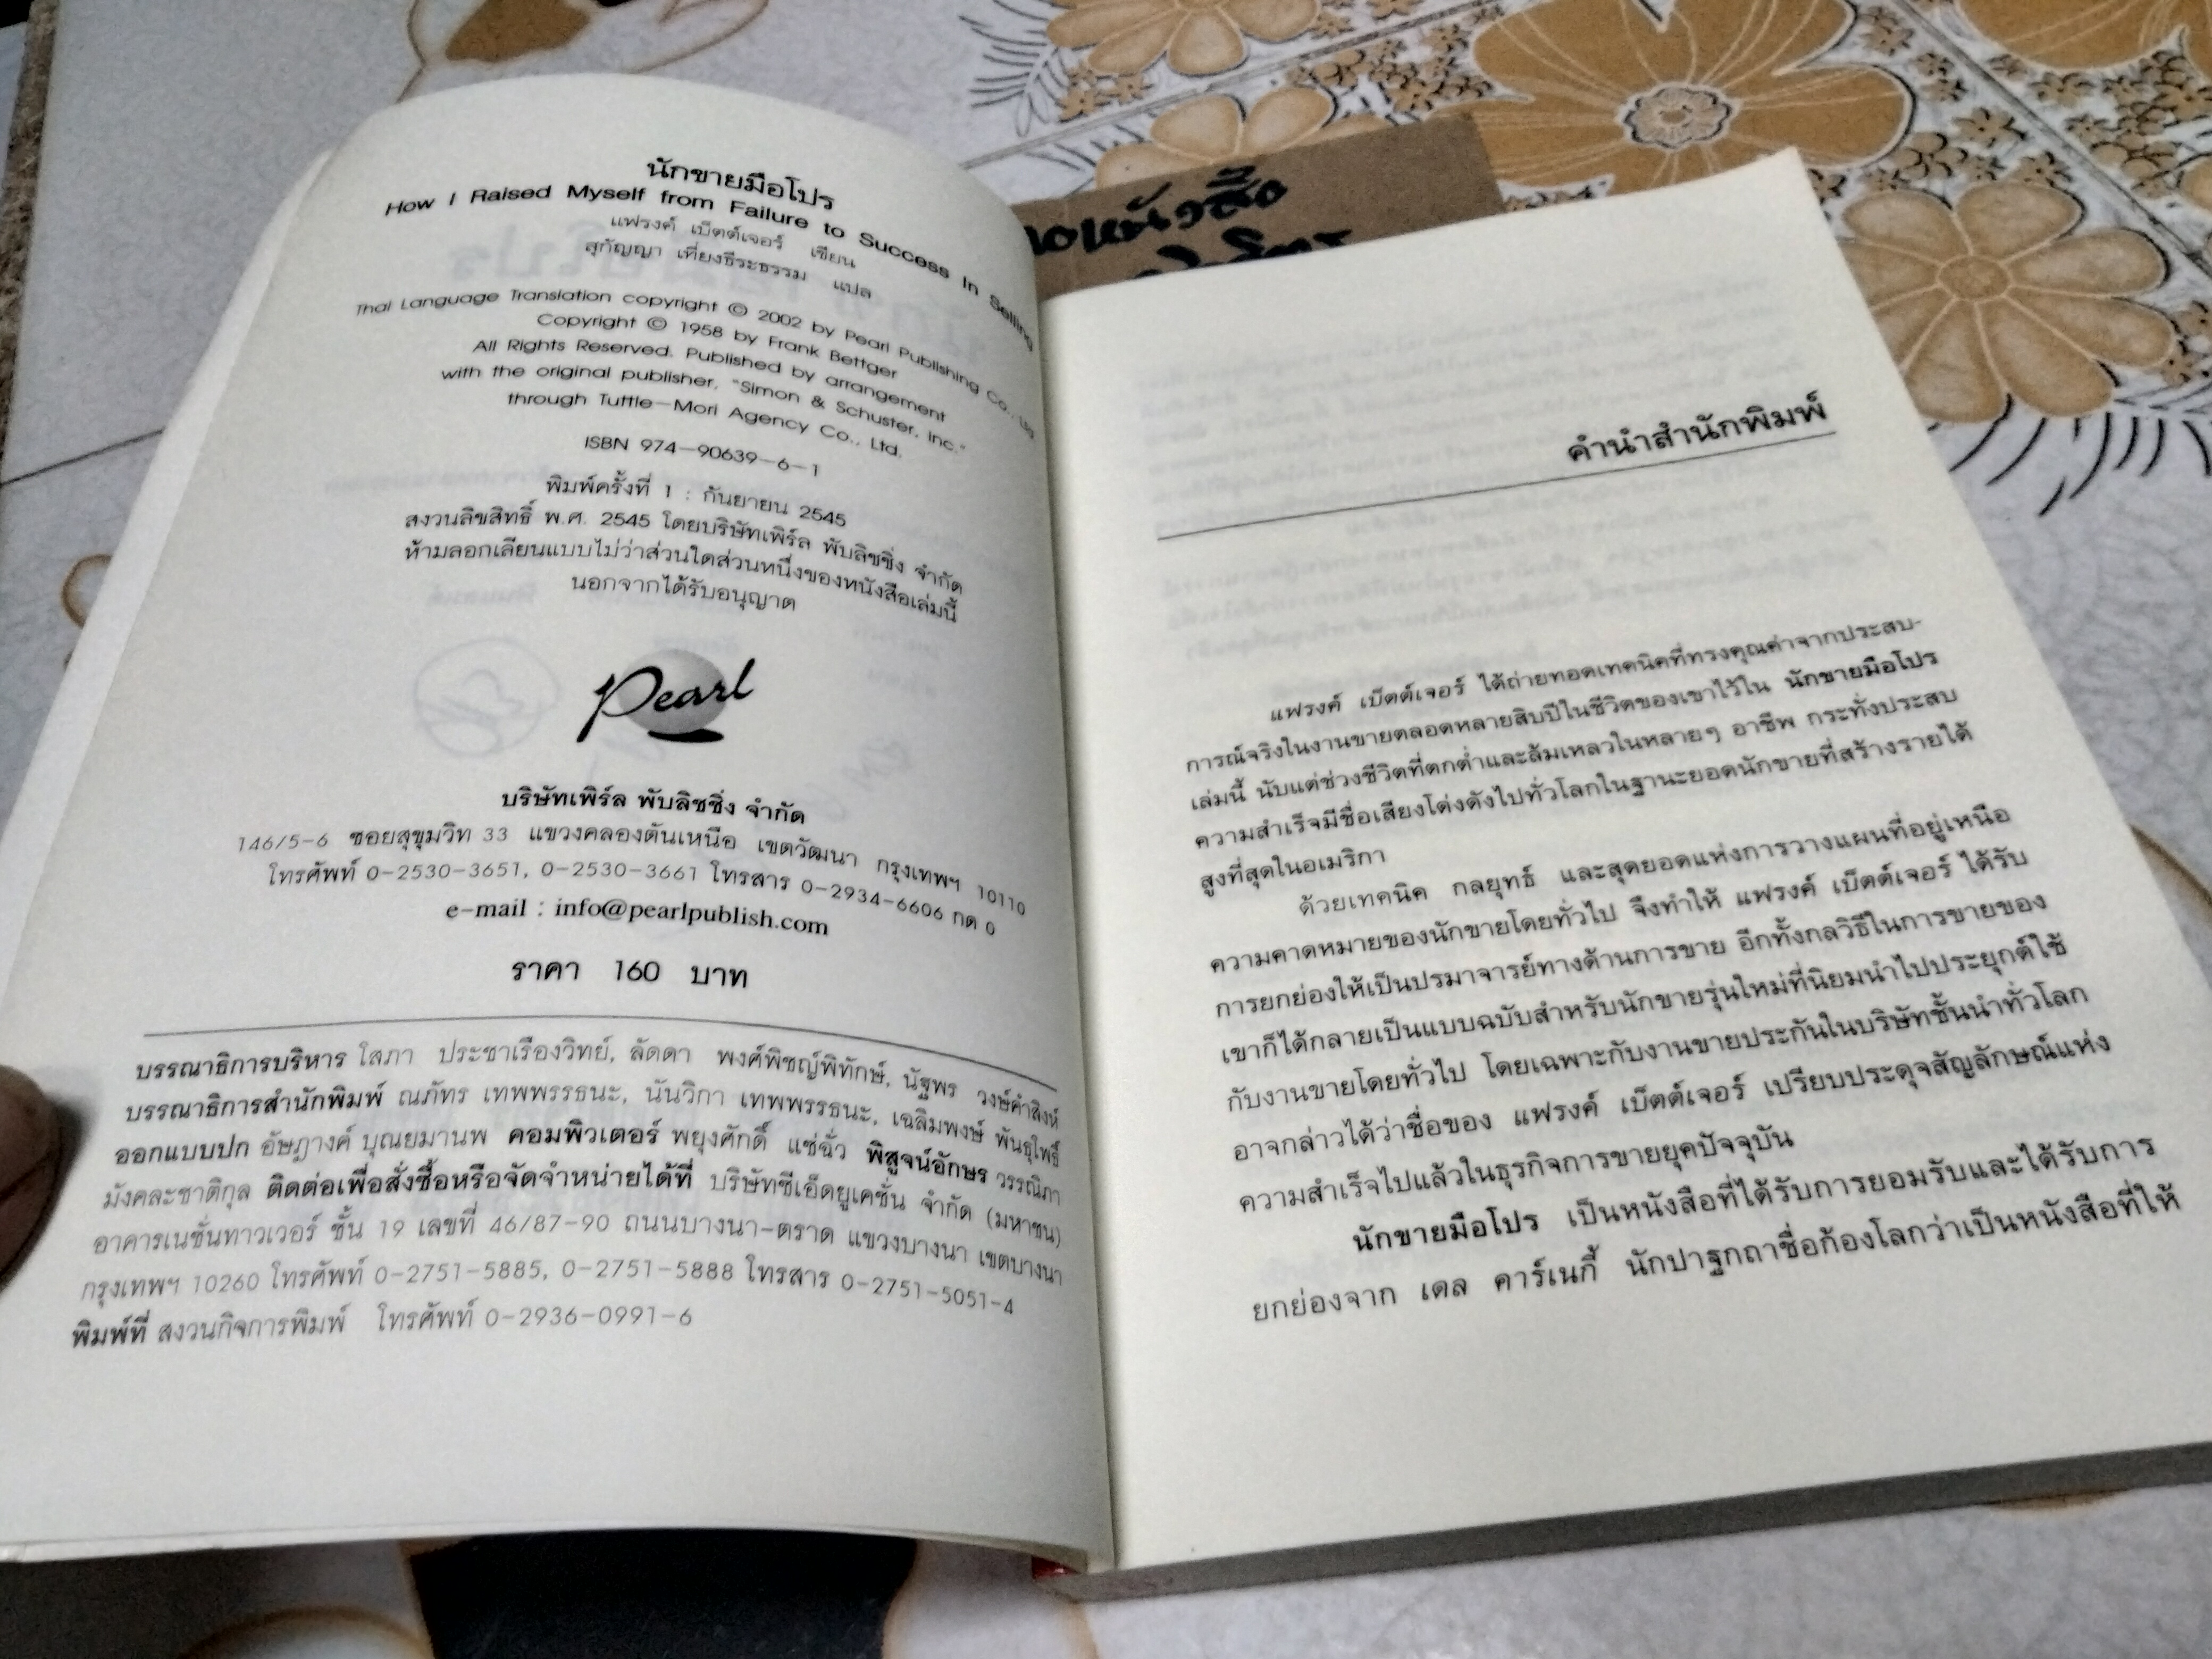 นักขายมือโปร
How I Raised Myself from Failure to Success in Selling
แฟรงค์ เบ็ตต์เจอร์ เขียน
สุกัญญา เที่ยงธีระธรรม แปล
Thai Language Translation copyright © 2002 by Pearl Publishing Co., Ltd
Copyright © 1958 by Frank Bettger
All Rights Reserved. Published by arrangement
with the original publisher, "Simon & Schuster, Inc."
through Tuttle-Mori Agency Co., Ltd.
ISBN 974-90639-6-1
พิมพ์ครั้งที่ 1 : กันยายน 2545
สงวนลิขสิทธิ์ พ.ศ. 2545 โดยบริษัทเพิร์ล พับลิชชิ่ง จำกัด
ห้ามลอกเลียนแบบไม่ว่าส่วนใดส่วนหนึ่งของหนังสือเล่มนี้
นอกจากได้รับอนุญาต
Pearl
บริษัทเพิร์ล พับลิชชิ่ง จำกัด
146/5-6 ซอยสุขุมวิท 33 แขวงคลองตันเหนือ เขตวัฒนา กรุงเทพฯ 10110
โทรศัพท์ 0-2530-3651, 0-2530-3661 โทรสาร 0-2934-6606 กด 0
e-mail : info@pearlpublish.com
ราคา 160 บาท
บรรณาธิการบริหาร โสภา ประชาเรืองวิทย์, ลัดดา พงศ์พิชญ์พิทักษ์, นัฐพร วงษ์คำสิงห์
บรรณาธิการสำนักพิมพ์ ณภัทร เทพพรรธนะ, นันวิกา เทพพรรธนะ, เฉลิมพงษ์ พันธุโพธิ์
ออกแบบปก อัษฎางค์ บุณยมานพ คอมพิวเตอร์ พยุงศักดิ์ แซ่ฉั่ว พิสูจน์อักษร วรรณิภา
มังคละชาติกุล ติดต่อเพื่อสั่งซื้อหรือจัดจำหน่ายได้ที่ บริษัทซีเอ็ดยูเคชั่น จำกัด (มหาชน)
อาคารเนชั่นทาวเวอร์ ชั้น 19 เลขที่ 46/87-90 ถนนบางนา-ตราด แขวงบางนา เขตบางนา
กรุงเทพฯ 10260 โทรศัพท์ 0-2751-5885, 0-2751-5888 โทรสาร 0-2751-5051-4
พิมพ์ที่ สงวนกิจการพิมพ์ โทรศัพท์ 0-2936-0991-6
คำนำสำนักพิมพ์
แฟรงค์ เบ็ตต์เจอร์ ได้ถ่ายทอดเทคนิคที่ทรงคุณค่าจากประสบ-
การณ์จริงในงานขายตลอดหลายสิบปีในชีวิตของเขาไว้ใน นักขายมือโปร
เล่มนี้ นับแต่ช่วงชีวิตที่ตกต่ำและล้มเหลวในหลายๆ อาชีพ กระทั่งประสบ
ความสำเร็จมีชื่อเสียงโด่งดังไปทั่วโลกในฐานะยอดนักขายที่สร้างรายได้
สูงที่สุดในอเมริกา
ด้วยเทคนิค กลยุทธ์ และสุดยอดแห่งการวางแผนที่อยู่เหนือ
ความคาดหมายของนักขายโดยทั่วไป จึงทำให้ แฟรงค์ เบ็ตต์เจอร์ ได้รับ
การยกย่องให้เป็นปรมาจารย์ทางด้านการขาย อีกทั้งกลวิธีในการขายของ
เขาก็ได้กลายเป็นแบบฉบับสำหรับนักขายรุ่นใหม่ที่นิยมนำไปประยุกต์ใช้
กับงานขายโดยทั่วไป โดยเฉพาะกับงานขายประกันในบริษัทชั้นนำทั่วโลก
อาจกล่าวได้ว่าชื่อของ แฟรงค์ เบ็ตต์เจอร์ เปรียบประดุจสัญลักษณ์แห่ง
ความสำเร็จไปแล้วในธุรกิจการขายยุคปัจจุบัน
นักขายมือโปร เป็นหนังสือที่ได้รับการยอมรับและได้รับการ
ยกย่องจาก เดล คาร์เนกี้ นักปาฐกถาชื่อก้องโลกว่าเป็นหนังสือที่ให้